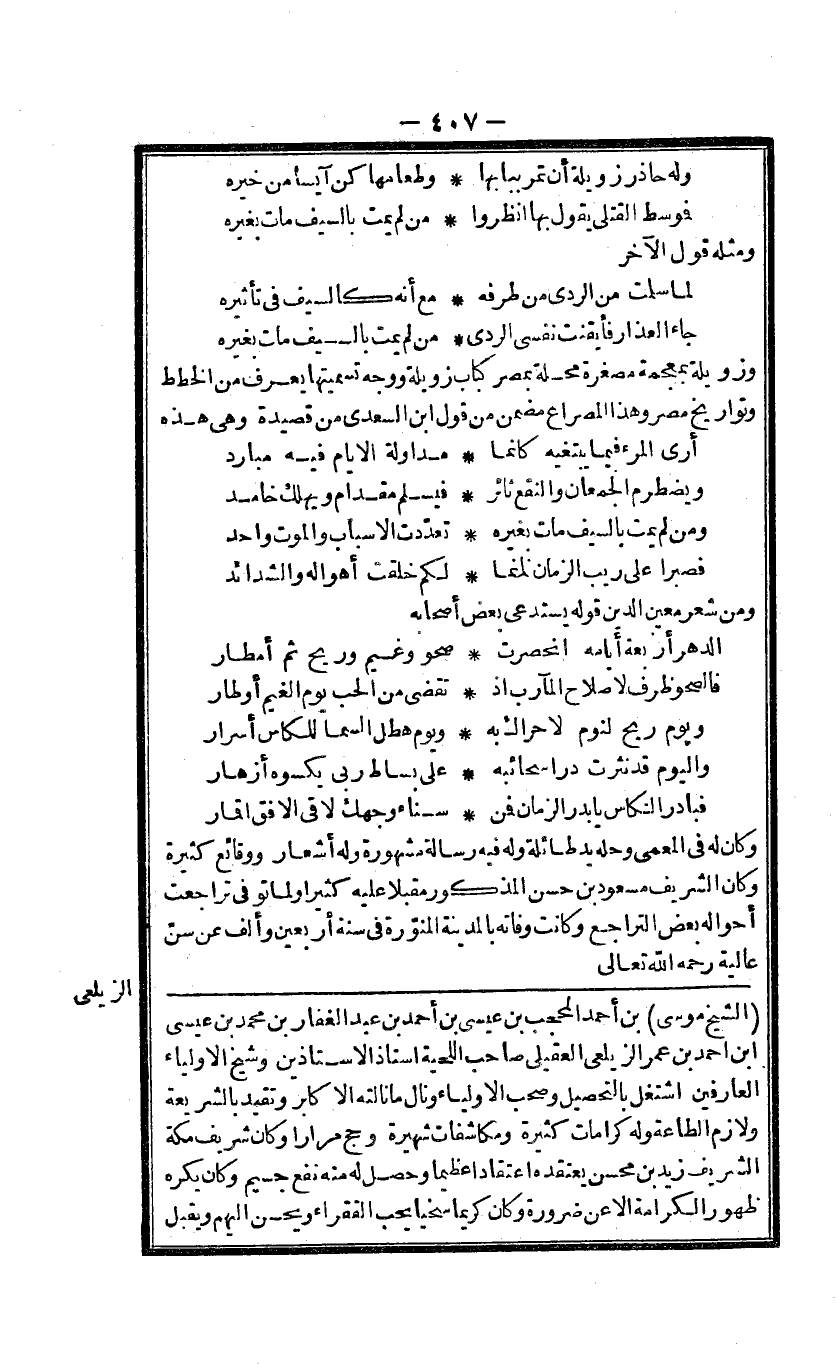 — ٤٠٧ —
وله حاذر زويلة أن تمر ببابها * وطعامها كن آيسا من خيره
فوسط القتلى يقول بها انظروا * من لم يمت بالسيف مات بغيره
ومثله قول الآخر
لما سلت من الردى من طرفه * مع أنه كالسيف فى تأثيره
جاء العذار فأيقنت نفسى الردى * من لم يمت بالسيف مات بغيره
وزويلة بمعجمة مصغرة محلة بمصر كباب زويلة ووجه تسميتها يعرف من الخطط
وتواريخ مصر وهذا المصراع مضمن من قول ابن السعدى من قصيدة وهى هذه
أرى المرء فيما يبتغيه كانما * مداولة الايام فيه مبارد
ويضطرم الجمعان والنقع ثائر * فيسلم مقدام ويهلك خامد
ومن لم يمت بالسيف مات بغيره * تعدّدت الاسباب والموت واحد
فصبرا على ريب الزمان فانما * لكم خلقت أهواله والشدائد
ومن شعر معين الدين قوله يستدعى بعض أصحابه
الدهر أربعة أيامه انحصرت * صحو وغيم وريح ثم أمطار
فالصحو ظرف لاصلاح المآرب اذ * تقضى من الحب يوم الغيم أوطار
ويوم ريح لنوم لاحراك به * ويوم هطل السما للكاس أسرار
واليوم قد نثرت درا سحائبه * على بساط ربى يكسوه أزهار
فبادر الكاس يا بدر الزمان فن * سناء وجهك لاقى الافق اقمار
وكان له فى المعمى وحله يد طائلة وله فيه رسالة مشهورة وله أشعار ووقائع كثيرة
وكان الشريف مسعود بن حسن المذكور مقبلا عليه كثيرا ولما توفى تراجعت
أحواله بعض التراجع وكانت وفاته بالمدينة المنوّرة فى سنة أربعين وألف عن سنّ
عالية رحمه الله تعالى
الزيلعى
(الشيخ موسى) بن أحمد المحجب بن عيسى بن أحمد بن عبد الغفار بن محمد بن عيسى
ابن احمد بن عمر الزيلعى العقيلى صاحب اللحية استاذ الاستاذين وشيخ الاولياء
العارفين اشتغل بالتحصيل وصحب الاولياء ونال ما نالته الاكابر وتقيد بالشريعة
ولازم الطاعة وله كرامات كثيرة ومكاشفات شهيرة وحج مرارا وكان شريف مكة
الشريف زيد بن محسن يعتقده اعتقادا عظيما وحصل له منه نفع جسيم وكان يكره
ظهور الكرامة الا عن ضرورة وكان كريما سخيا يحب الفقراء ويحسن اليهم ويقبل